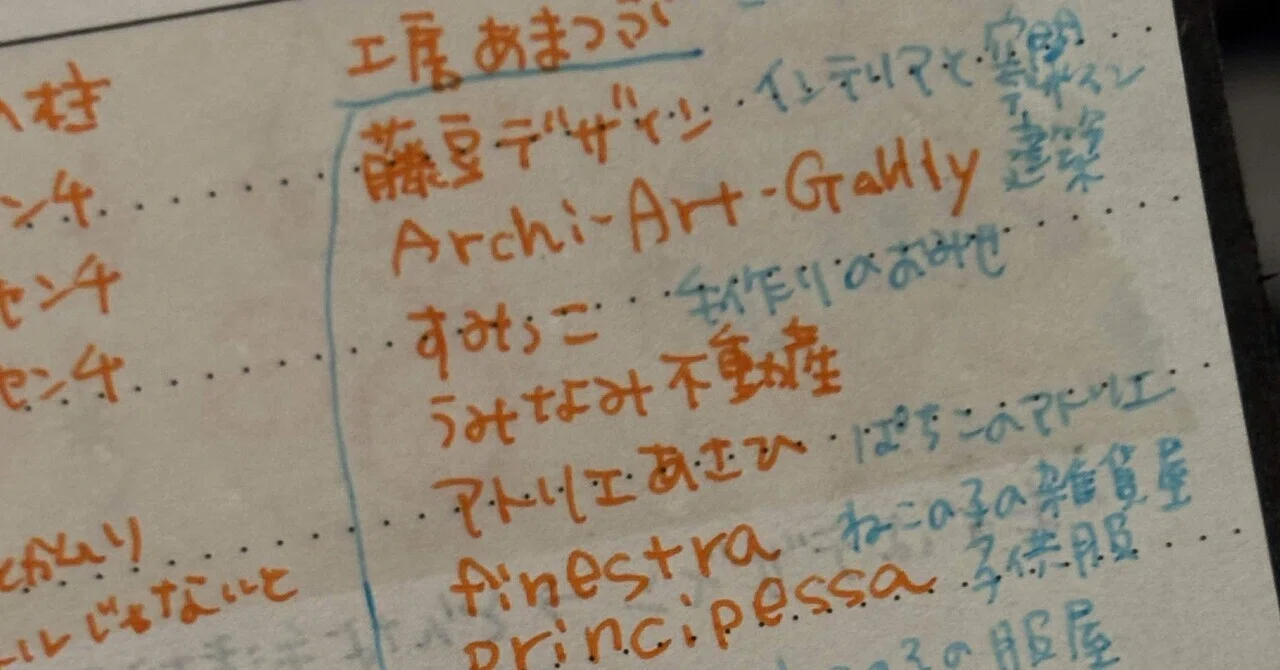 柱
ンチ
センチ
センチ
じゃないと
工房あまつぶ
藤豆デザイン インテリアと空間デザイン
建築
Archi-Art-Gallly
すみっこ 手作りのおみせ
うみなみ不動産
アトリエあさひ ぱちこのアトリエ
finestra ねこの子の雑貨屋
principessa 子供服
子の服屋